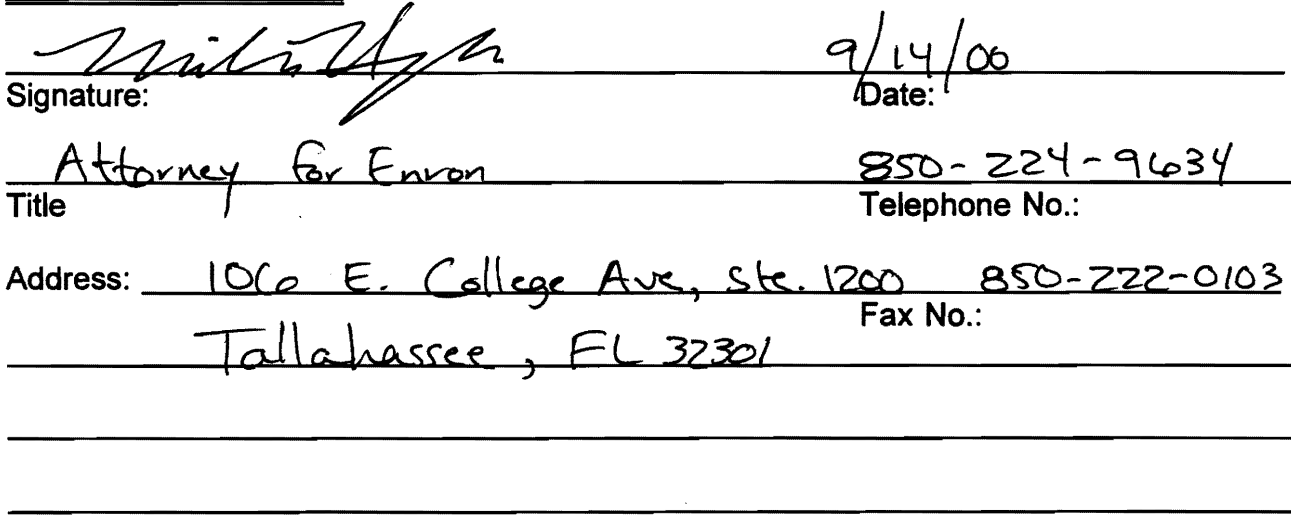 9/14/00
Signature: Date:
Attorney for Enron 850-224-9634
Title Telephone No.:
Address: 106 E. College Ave, Ste. 1200 850-222-0103
Fax No.:
Tallahassee, FL 32301